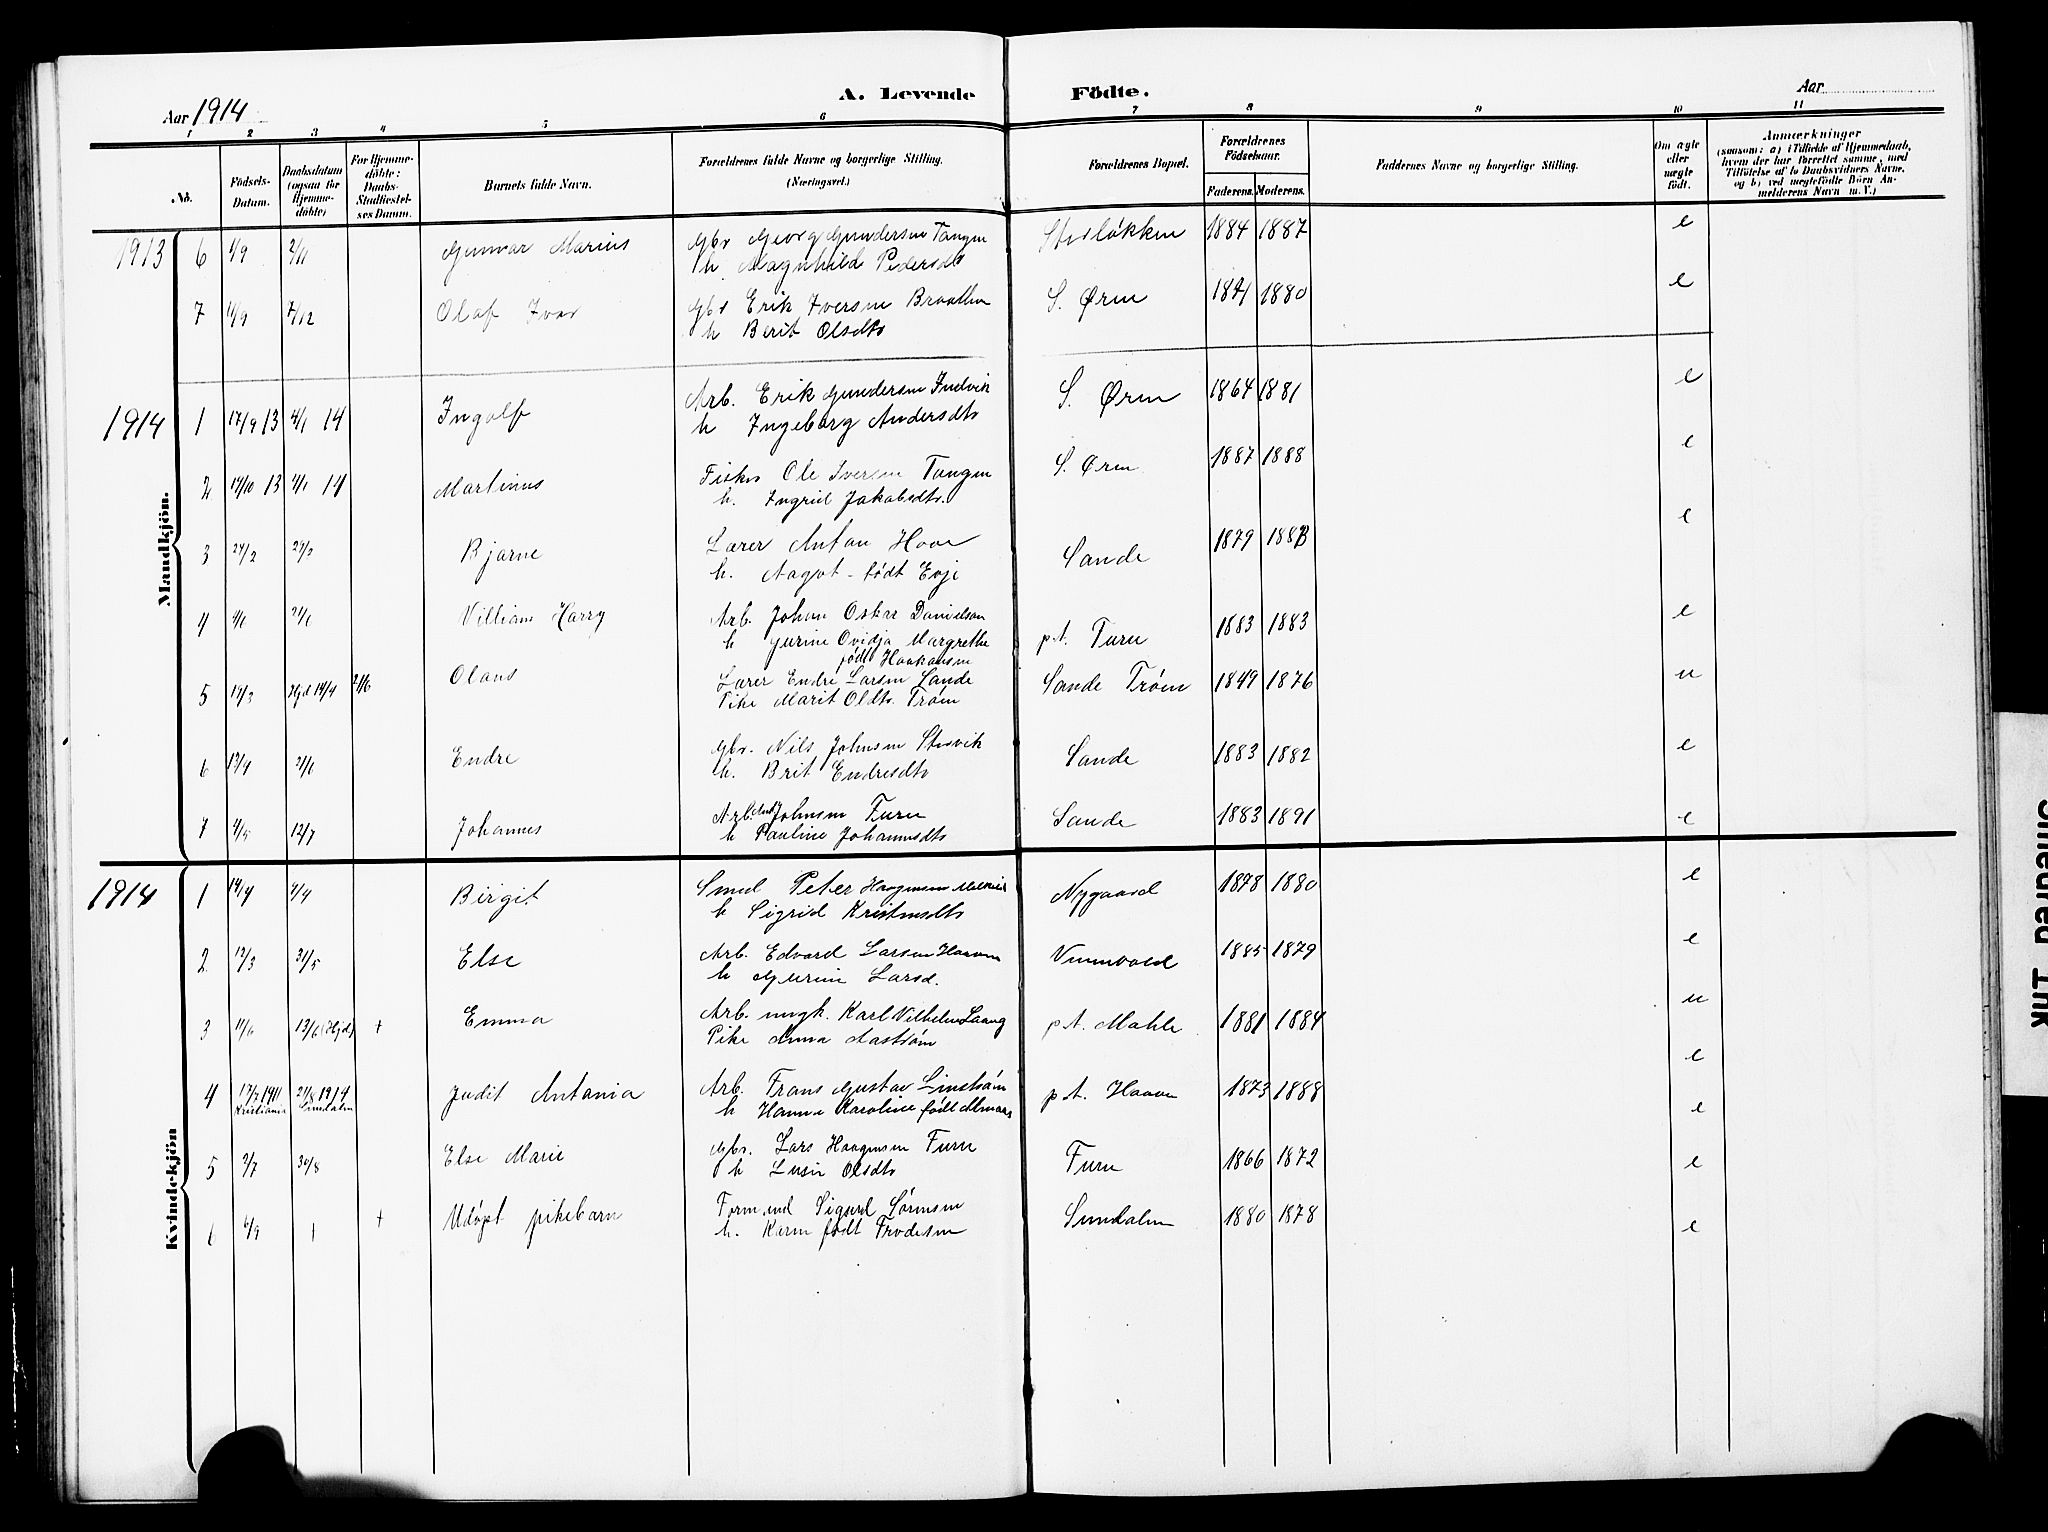 A. Levende Födte.
Aar 1914
Aar
1 2 3 4 5 6 7 8 9 10 11
No.
Födsels-Datum.
Daabsdatum (ogsaa for Hjemme-döbte)
For Hjemme-döbte: Daabs-Stadfæstel-ses Datum.
Barnets fulde Navn.
Forældrenes fulde Navne og borgerlige Stilling. (Næringsvei.)
Forældrenes Bopæl.
Forældrenes Födselsaar.
Faderens. Moderens.
Faddernes Navne og borgerlige Stilling.
Om ægte eller uægte födt.
Anmærkninger
(saasom: a) i Tilfælde af Hjemmedaab, hvem der har forrettet samme, med Tilföielse af to Daabsvidners Navne, og b) ved uægtefödte Börn An-melderens Navn m. V.)
Mandkjön.
1913 6 1/9 2/11 Gunvar Marius Gbr Georg Gundersen Tangen Storløkken 1884 1887 e
h. Magnhild Pedersdtr
7 11/9 7/12 Olaf Ivar Gbr Erik Iversen Braathen S. Øren 1880 e
h Berit Olsdtr
1914 1 17/9 13 4/1 14 Ingolf Arb. Erik Gundersen Indvik S. Øren 1864 1881 e
h Ingeborg Andersdtr
2 14/10 13 4/1 14 Martinus Fisker Ole Iversen Tangen S. Øren 1887 1888 e
h. Ingrid Jakobsdtr.
3 24/2 29/3 Bjarne Lærer Anton Hove Sande 1879 e
h. Aagot - født Evje
4 4/1 21/6 Villiam Harry Arb. Johan Oskar Danielson p.t. Furu 1883 1883 e
h Jurine Ovidja Margrethe
født Haakonsen
5 14/3 Hjd 14/4 21/6 Olaus Lærer Endre Larsen Sande Sande Trøen 1849 1876 u
Pike Marit Olsdtr. Trøen
6 13/4 21/6 Endre Gbr. Nils Johnsen Storvik Sande 1883 1882 e
h. Brit Endresdtr
7 4/5 12/7 Johannes Arb. Johnsen Furu Sande 1883 1891 e
h Pauline Johannesdtr
Kvindekjön
1914 1 2/4 Birgit Smed Peter Haagensen Nygaard 1878 1880 e
h Sigrid Kristensdtr
2 12/3 31/5 Else Arb. Edvard Larsen Haaven Vinnvold 1885 1879 e
h Gurine Larsd.
3 11/6 13/6 (Hjd) + Emma Arb. ungk. Karl Vilhelm Laang p.t. Mahle 1881 1884 u
Pike Anna Aastrøm
4 17/2 1911 Kristiania 24/8 1914 Sundalen Judit Antonia Arb. Frans Gustav Linstrøm p.t. Haaven 1873 1888 e
h Hanna Karoline født Almaas e
5 2/7 30/8 Else Marie Gbr. Lars Haagensen Furu Furu 1866 1872 e
h Lusie Olsdtr
6 6/9 1 + Udøpt pikebarn Form.end Sigurd Sørensen Sundalen 1880 1878 e
h. Karen født Frodesen